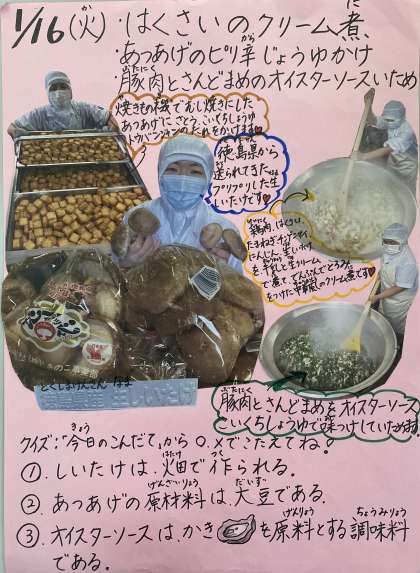 1/16(火)・はくさいのクリーム煮
・あつあげのピリ辛じょうゆかけ
・豚肉とさんどまめのオイスターソースいため
焼きもの機でむし焼きにした
あつあげにさとう、こいくちしょうゆ
トウバンジャンのたれをかけます
徳島県から
送られてきた
プリプリした生
しいたけです
鶏肉、はくさい
たまねぎ
にんじん、生しいたけ
を牛乳と生クリーム
で煮て、でんぷんでとろみ
をつけた中華風のクリーム煮です
とくしまけんさん なま
豚肉とさんどまめをオイスターソース
こいくちしょうゆで味つけしていためます
クイズ:「今日のこんだて」から○、×でこたえてね!
①. しいたけは、畑で作られる。
②. あつあげの原材料は、大豆である。
③. オイスターソースは、かきを原料とする調味料
である。